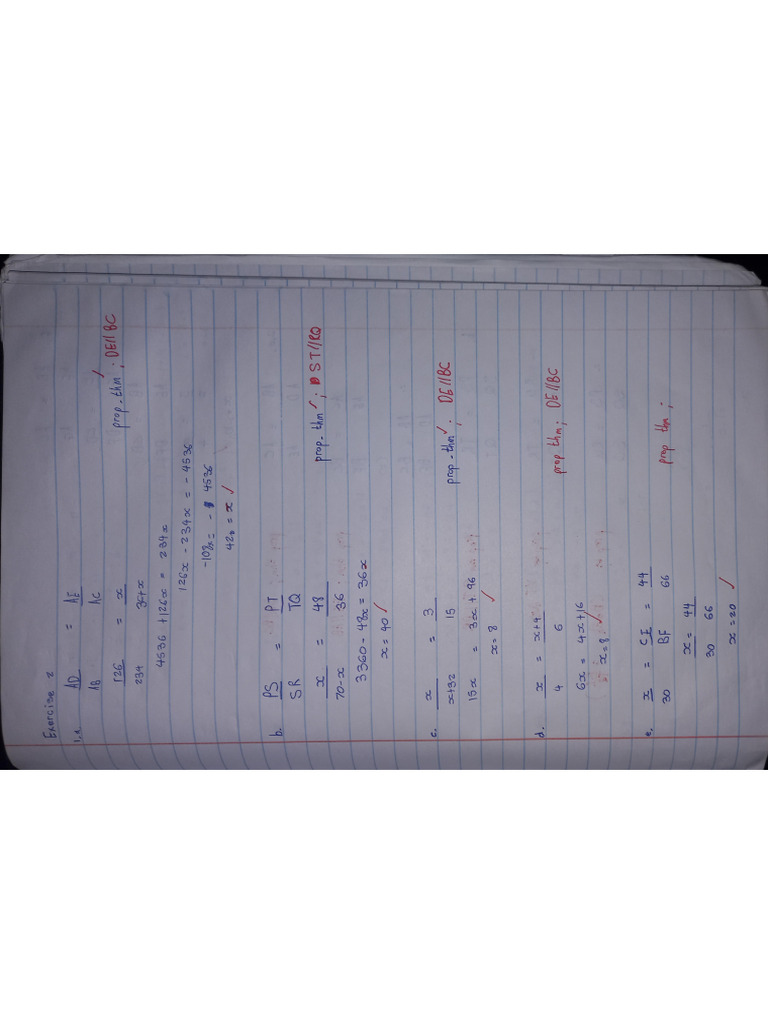 Exercise 2
1.a. AD = AE
AB AC
126 = x prop. thm ✓; DE//BC
234 36+x
4536 + 126x = 234x
126x - 234x = - 4536
-108x = - 4536
42 = x ✓
b. PS = PT
SR TQ
x = 48 prop. thm ✓; ST//RQ
70-x 36
3360 - 48x = 36x
x = 40 ✓
c. x = 3
x+32 15 prop. thm ✓; DE//BC
15x = 3x + 96
x = 8 ✓
d. x = x+4
4 6 prop thm; DE//BC
6x = 4x+16
x = 8. ✓
e. x = CE = 44
30 BF 66 prop thm;
x = 44
30 66
x = 20 ✓